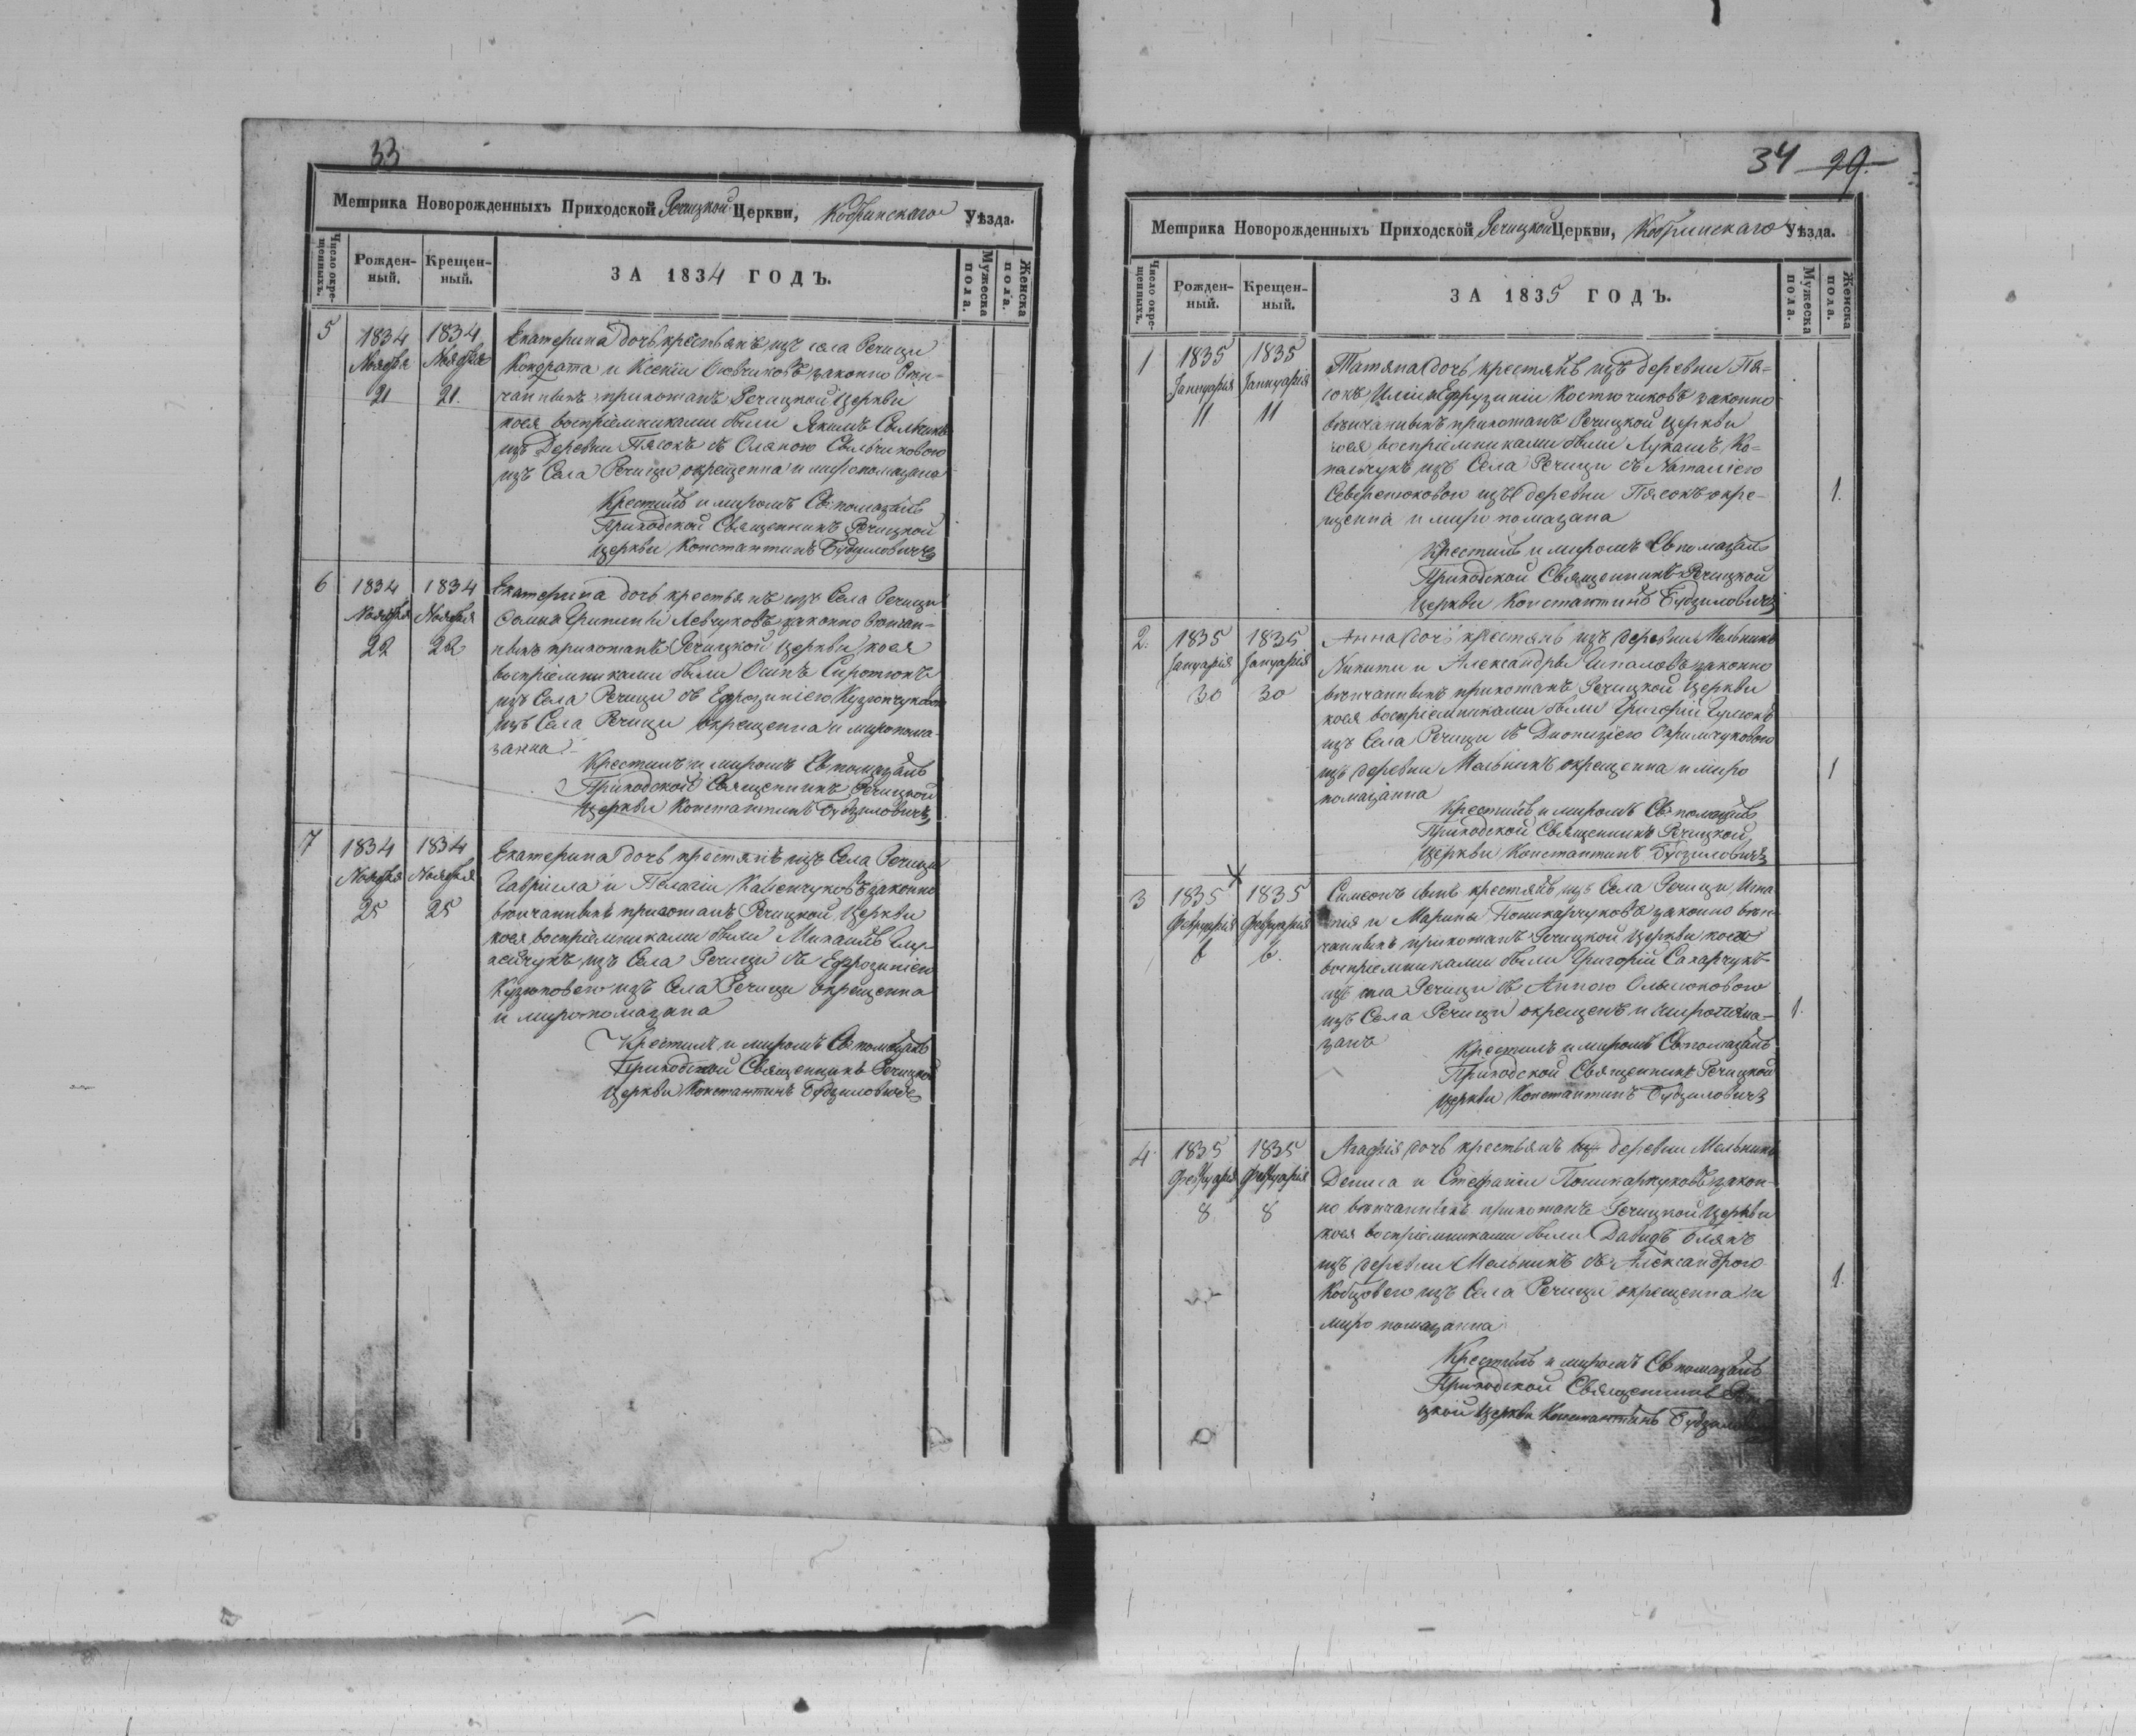 33
Метрика Новорожденныхъ Приходской Речицкой Церкви, Кобринскаго Уѣзда.
Число окрещенныхъ.
Рожденный.
Крещенный.
ЗА 1834 ГОДЪ.
Мужеска пола.
Женска пола.
5
1834 Ноября 21
1834 Ноября 21.
Екатерина дочь крестьянъ изъ села Речицы
Кондрата и Ксеніи законно вѣн-
чанныхъ прихожанъ Речицкой Церкви
коея воспріемниками были Якимъ
изъ Деревни Пясокъ съ
изъ Села Речицы окрещенна и миропомазана
Крестилъ и миромъ Св. помазалъ
Приходской Священникъ Речицкой
Церкви Константинъ Будзиловичъ
6
1834 Ноября 22
1834 Ноября 22
Екатерина дочь крестьянъ изъ Села Речицы
Левчуковъ законно вѣнчан-
ныхъ прихожанъ Речицкой Церкви коея
воспріемниками были Осипъ Сиротюкъ
изъ Села Речицы съ Ефрозиніею
изъ Села Речицы окрещенна и миропома-
занна
Крестилъ и миромъ Св. помазалъ
Приходской Священникъ Речицкой
Церкви Константинъ Будзиловичъ
7
1834 Ноября 25
1834 Ноября 25
Екатерина дочь крестянъ изъ Села Речицы
Гавріила и Пелагіи законно
вѣнчанныхъ прихожанъ Речицкой Церкви
коея воспріемниками были Михаилъ
изъ Села Речицы съ Ефрозиніею
Кузюковою изъ Села Речицы окрещенна
и миропомазана
Крестилъ и миромъ Св. помазалъ
Приходской Священникъ Речицкой
Церкви Константинъ Будзиловичъ
34 29.
Метрика Новорожденныхъ Приходской Речицкой Церкви, Кобринскаго Уѣзда.
Число окрещенныхъ.
Рожденный.
Крещенный.
ЗА 1835 ГОДЪ.
Мужеска пола.
Женска пола.
1
1835 Январія 11
1835 Январія 11
Татяна дочь крестянъ изъ деревни Пя-
сокъ Иліи и Ефрузиніи Костючиковъ законно
вѣнчанныхъ прихожанъ Речицкой Церкви
коея воспріемниками были Лукашъ Ко-
вальчукъ изъ Села Речицы съ Наталіею
изъ деревни Пясокъ окре-
щенна и миро помазана
1.
Крестилъ и миромъ Св помазалъ
Приходской Священникъ Речицкой
Церкви Константинъ Будзиловичъ
2.
1835 Януарія 30
1835 Януарія 30
Анна дочь крестянъ изъ деревни Мельникъ
Никиты и Александры законно
вѣнчанныхъ прихожанъ Речицкой Церкви
коея воспріемниками были Григорій
изъ Села Речицы съ Діонизіею
изъ деревни Мельникъ окрещенна и миро
помазанна
1
Крестилъ и миромъ Св. помазалъ
Приходской Священникъ Речицкой
Церкви Константинъ Будзиловичъ
3
1835 Февруарія 6
1835 Февруарія 6.
Симеонъ сынъ крестянъ изъ Села Речицы Игна-
тія и Марины Поликарчуковъ законно вѣн-
чанныхъ прихожанъ Речицкой Церкви коего
воспріемниками были Григорій Сахарчукъ
изъ села Речицы съ Анною
изъ Села Речицы окрещенъ и миропома-
занъ
1.
Крестилъ и миромъ Св. помазалъ
Приходской Священникъ Речицкой
Церкви Константинъ Будзиловичъ
4
1835 Февруарія 8
1835 Февруарія 8
Агафія дочь крестьянъ изъ деревни Мельникъ
Дениса и Стефаніи Поликарчуковъ закон-
но вѣнчанныхъ прихожанъ Речицкой Церкви
коея воспріемниками были Давидъ
изъ деревни Мельникъ съ Александрою
изъ Села Речицы окрещенна и
миро помазанна
1.
Крестилъ и миромъ Св помазалъ
Приходской Священникъ Речи-
цкой Церкви Константинъ Будзиловичъ